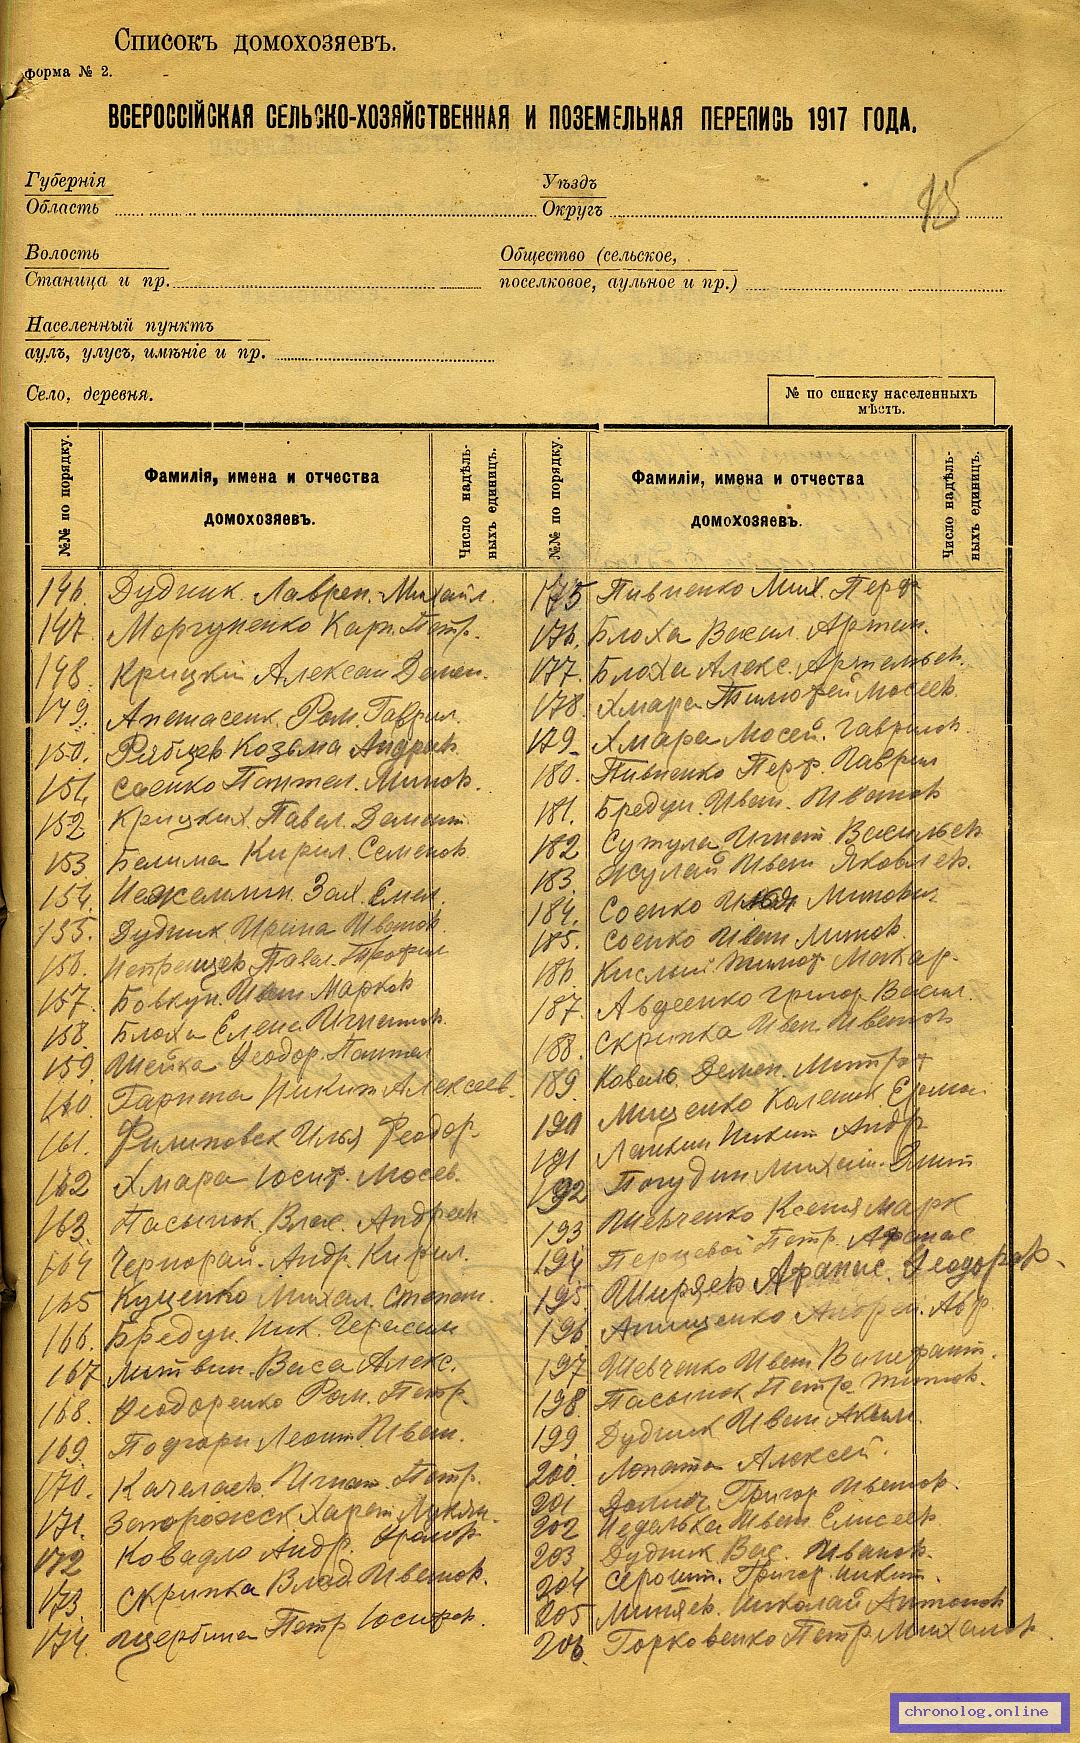 Списокъ домохозяевъ.
форма № 2.
ВСЕРОССІЙСКАЯ СЕЛЬСКО-ХОЗЯЙСТВЕННАЯ И ПОЗЕМЕЛЬНАЯ ПЕРЕПИСЬ 1917 ГОДА.
Губернія
Область
Уѣздъ
Округъ
15
Волость
Станица и пр.
Общество (сельское,
поселковое, аульное и пр.)
Населенный пунктъ
аулъ, улусъ, имѣніе и пр.
Село, деревня.
№ по списку населенныхъ
мѣстъ.
№№ по порядку.
Фамилія, имена и отчества
домохозяевъ.
Число надѣль-
ныхъ единицъ.
146. Дудник. Лаврен. Михайл.
147. Моргуненко Карп. Петр.
148. Крицкій Алексан Демен.
149. Апанасенк. Ром. Гаврил.
150. Рябцев Козьма Андрик.
151. Соенко Пантел. Минов.
152 Крицких. Павел. Демент
153. Белима Кирил. Семенов
154. Зах. Емел.
155. Дудник Ирина Иванов.
156. Павл. Трофил
157. Бовкун. Иван Марков
158. Блоха Елена Игнатов.
159. Шейка Феодор. Пантел
160. Гарпина Никит Алексеев.
161. Филиповск Илья Феодор.
162 Хмара Іосиф. Мосев.
163. Пасынок. Влас. Андреев
164 Чернорай. Андр. Кирил.
165 Куценко Михал. Степан.
166. Бредун. Ник. Герасим
167 Литвин. Васа Алекс.
168. Феодоренко Ром. Петр.
169. Подгорн Леонт. Иван.
170. Качелаев. Игнат. Петр.
171. Запорожск Харат. Лукян.
172 Ковадло Андр.
173. Скрипка Влад. Иванов.
174. Щербина Петр Іосифов.
№№ по порядку.
Фамиліи, имена и отчества
домохозяевъ.
Число надѣль-
ныхъ единицъ.
175 Пивненко Мих. Перф
176. Блоха Васил. Артем.
177. Блоха Алекс. Артемьев.
178. Хмара Тимофей Мосеев
179. Хмара Мосей. Гаврилов.
180. Пивненко Перф. Гаврил
181. Бредун. Иван. Иванов
182 Сутула Игнат Васильев
183. Жулай Иван Яковлев.
184. Соенко Илья Минович
185. Соенко Иван Минов.
186. Кислый. Тимоф Макар.
187. Авдеенко Григор Васил.
188. Скрипка Иван. Иванов
189. Коваль. Демен. Митроф
190 Мищенко Каленик. Ермол
191 Лапкин Никит Андр
192 Погудин Михаил. Дмит
193 Шевченко Ксения Марк
194 Перцевой Петр. Афанас
195. Ширяев Афанас. Феодоров.
196 Анищенко Андрей. Авр.
197 Шевченко Иван Венефант.
198. Пасынок Петр Тимов.
199. Дудник Иван Аким.
200. Лопата Алексей.
201 Григор Иванов.
202 Неделька Иван Елисеев
203 Дудник Вас. Иванов.
204 Серошт. Григор. Никит.
205 Миняев. Николай Антонов
206. Горковенко Петр Михалов
chronolog.online